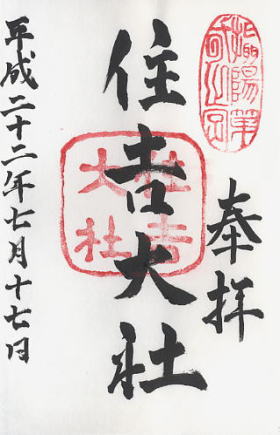 奉拝
住吉大社
住吉大社
平成二十二年七月十七日